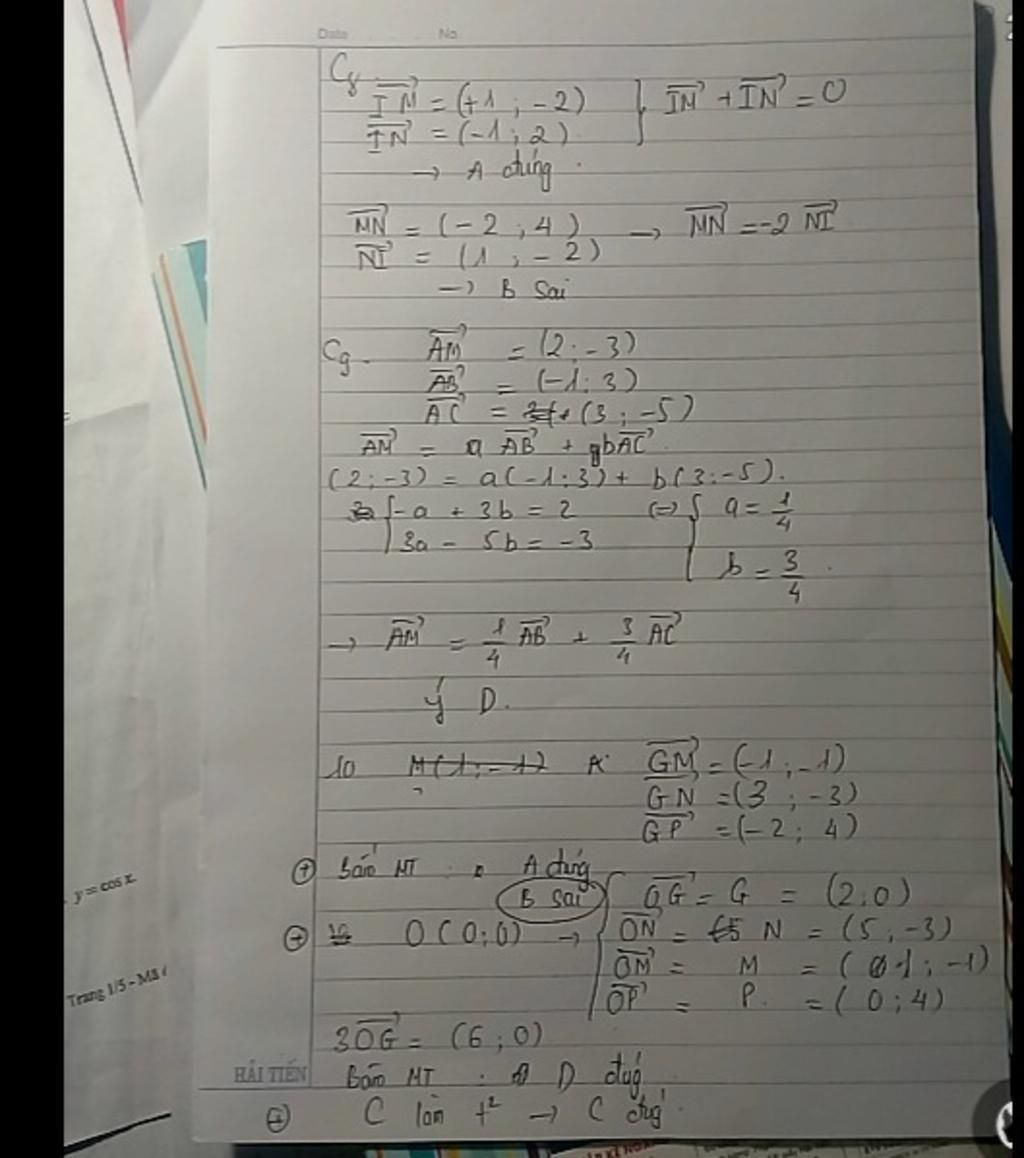 Date No.
C8
IM = (+1 ; -2) } IM + IN = 0
IN = (-1 ; 2)
→ A đúng.
MN = (-2 ; 4) → MN = -2 NI
NI = (1 ; -2)
→ B Sai
C9. AM = (2 ; -3)
AB = (-1 ; 3)
AC = (3 ; -5)
AM = a AB + bAC.
(2 ; -3) = a(-1 ; 3) + b(3 ; -5).
{ -a + 3b = 2 (=) { a = 1/4
3a - 5b = -3
b = 3/4.
→ AM = 1/4 AB + 3/4 AC
ý D.
10 M(1 ; -1) A. GM = (-1 ; -1)
GN = (3 ; -3)
GP = (-2 ; 4)
+ Bấm MT : A đúng
B sai { OG = G = (2 ; 0)
→ O(0 ; 0) → ON = N = (5 ; -3)
OM = M = (1 ; -1)
OP = P. = (0 ; 4)
3OG = (6 ; 0)
Bấm MT : D đúg
+ C làm t² → C đúg.
HẢI TIẾN
y = cos x.
Trang 1/5 - Mã